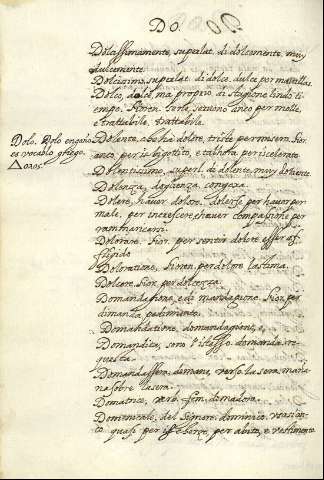 Do.
Dolcissimamente, superlat. di dolcemente, muy
dulcemente.
Dolcissimo, superlat. di dolce, dulce por maravillas.
Dolce, dolce, ma proprio la stagione
tempo. Fioren. Certo, sereno anco per molle,
e trattabile, trattabile
Dolo. Dolo engaño
es vocablo griego.
Δολος.
Dolente, che ha dolore, triste per misero. Fior.
anco per isbigottito, e talhora per iscelerato
Dolentissimo, superl. di dolente, muy doliente.
Dolenza, doglienza, congoxa.
Dolere, haver dolore, dolerse per haver per
male, per increscere, haver compassione per
rammaricarsi.
Dolorare, Fior. per sentir dolore, esser af-
flitto
Doloratione, Fioren. per dolore lastima.
Dolzore, Fior. per dolcezza.
Domandagione, e de mandagione. Fior. per
dimanda, pedimiento.
Domandatione, domandagione, e,
Domandita, sono l'istesso, domanda, re-
questa.
Domandassera, demane, verso la sera, maña-
na sobre la sera.
Domatrice, verb. fem. domadora.
Domenicale, del Signore, dominico, usasi an-
quasi per ischerzo, per abito, e vestimento